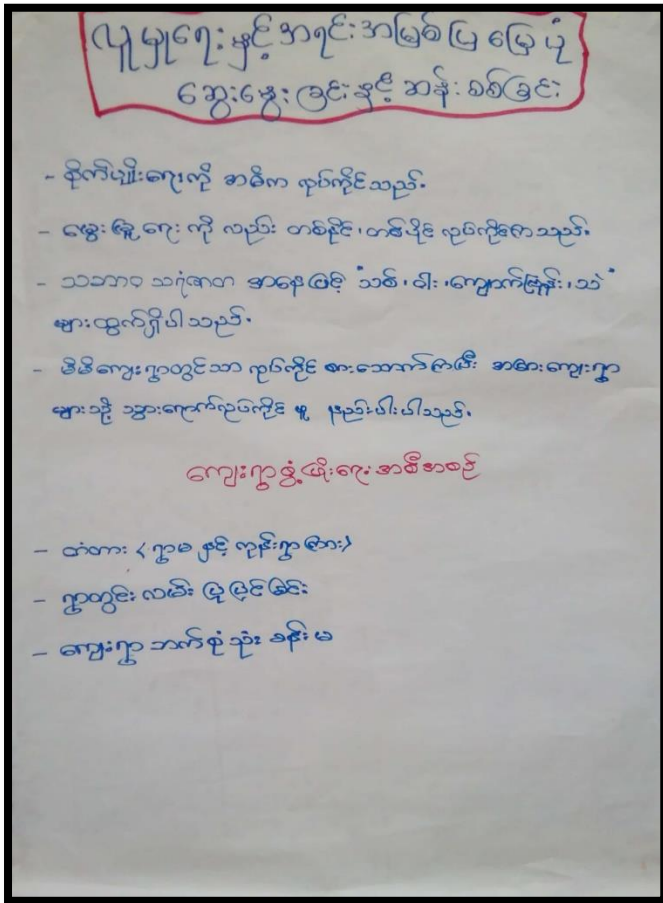 လူမှုရေးနှင့် အရင်းအမြစ်ပြ မြေပုံ
ဆွေးနွေးခြင်းနှင့် ဆန်းစစ်ခြင်း
- စိုက်ပျိုးရေးကို အဓိက လုပ်ကိုင်သည်.
- မွေးမြူရေးကို လည်း တစ်နိုင်၊ တစ်ပိုင် လုပ်ကိုင်ကြသည်.
- သဘာဝ သယံဇာတ အနေဖြင့် "သစ်၊ ဝါး၊ ကျောက်ဖြုန်း၊ သဲ"
များထွက်ရှိပါသည်.
- မိမိကျေးရွာတွင်သာ လုပ်ကိုင် စားသောက်ကြပြီး အခြားကျေးရွာ
များသို့ သွားရောက်လုပ်ကိုင် မှု နည်းပါးပါသည်.
ကျေးရွာဖွံ့ဖြိုးရေး အစီအစဉ်
- တံတား (ရွာမ နှင့် ကုန်းရွာကြား)
- ရွာတွင်း လမ်း ပြုပြင်ခြင်း
- ကျေးရွာ ဘက်စုံသုံး ခန်းမ